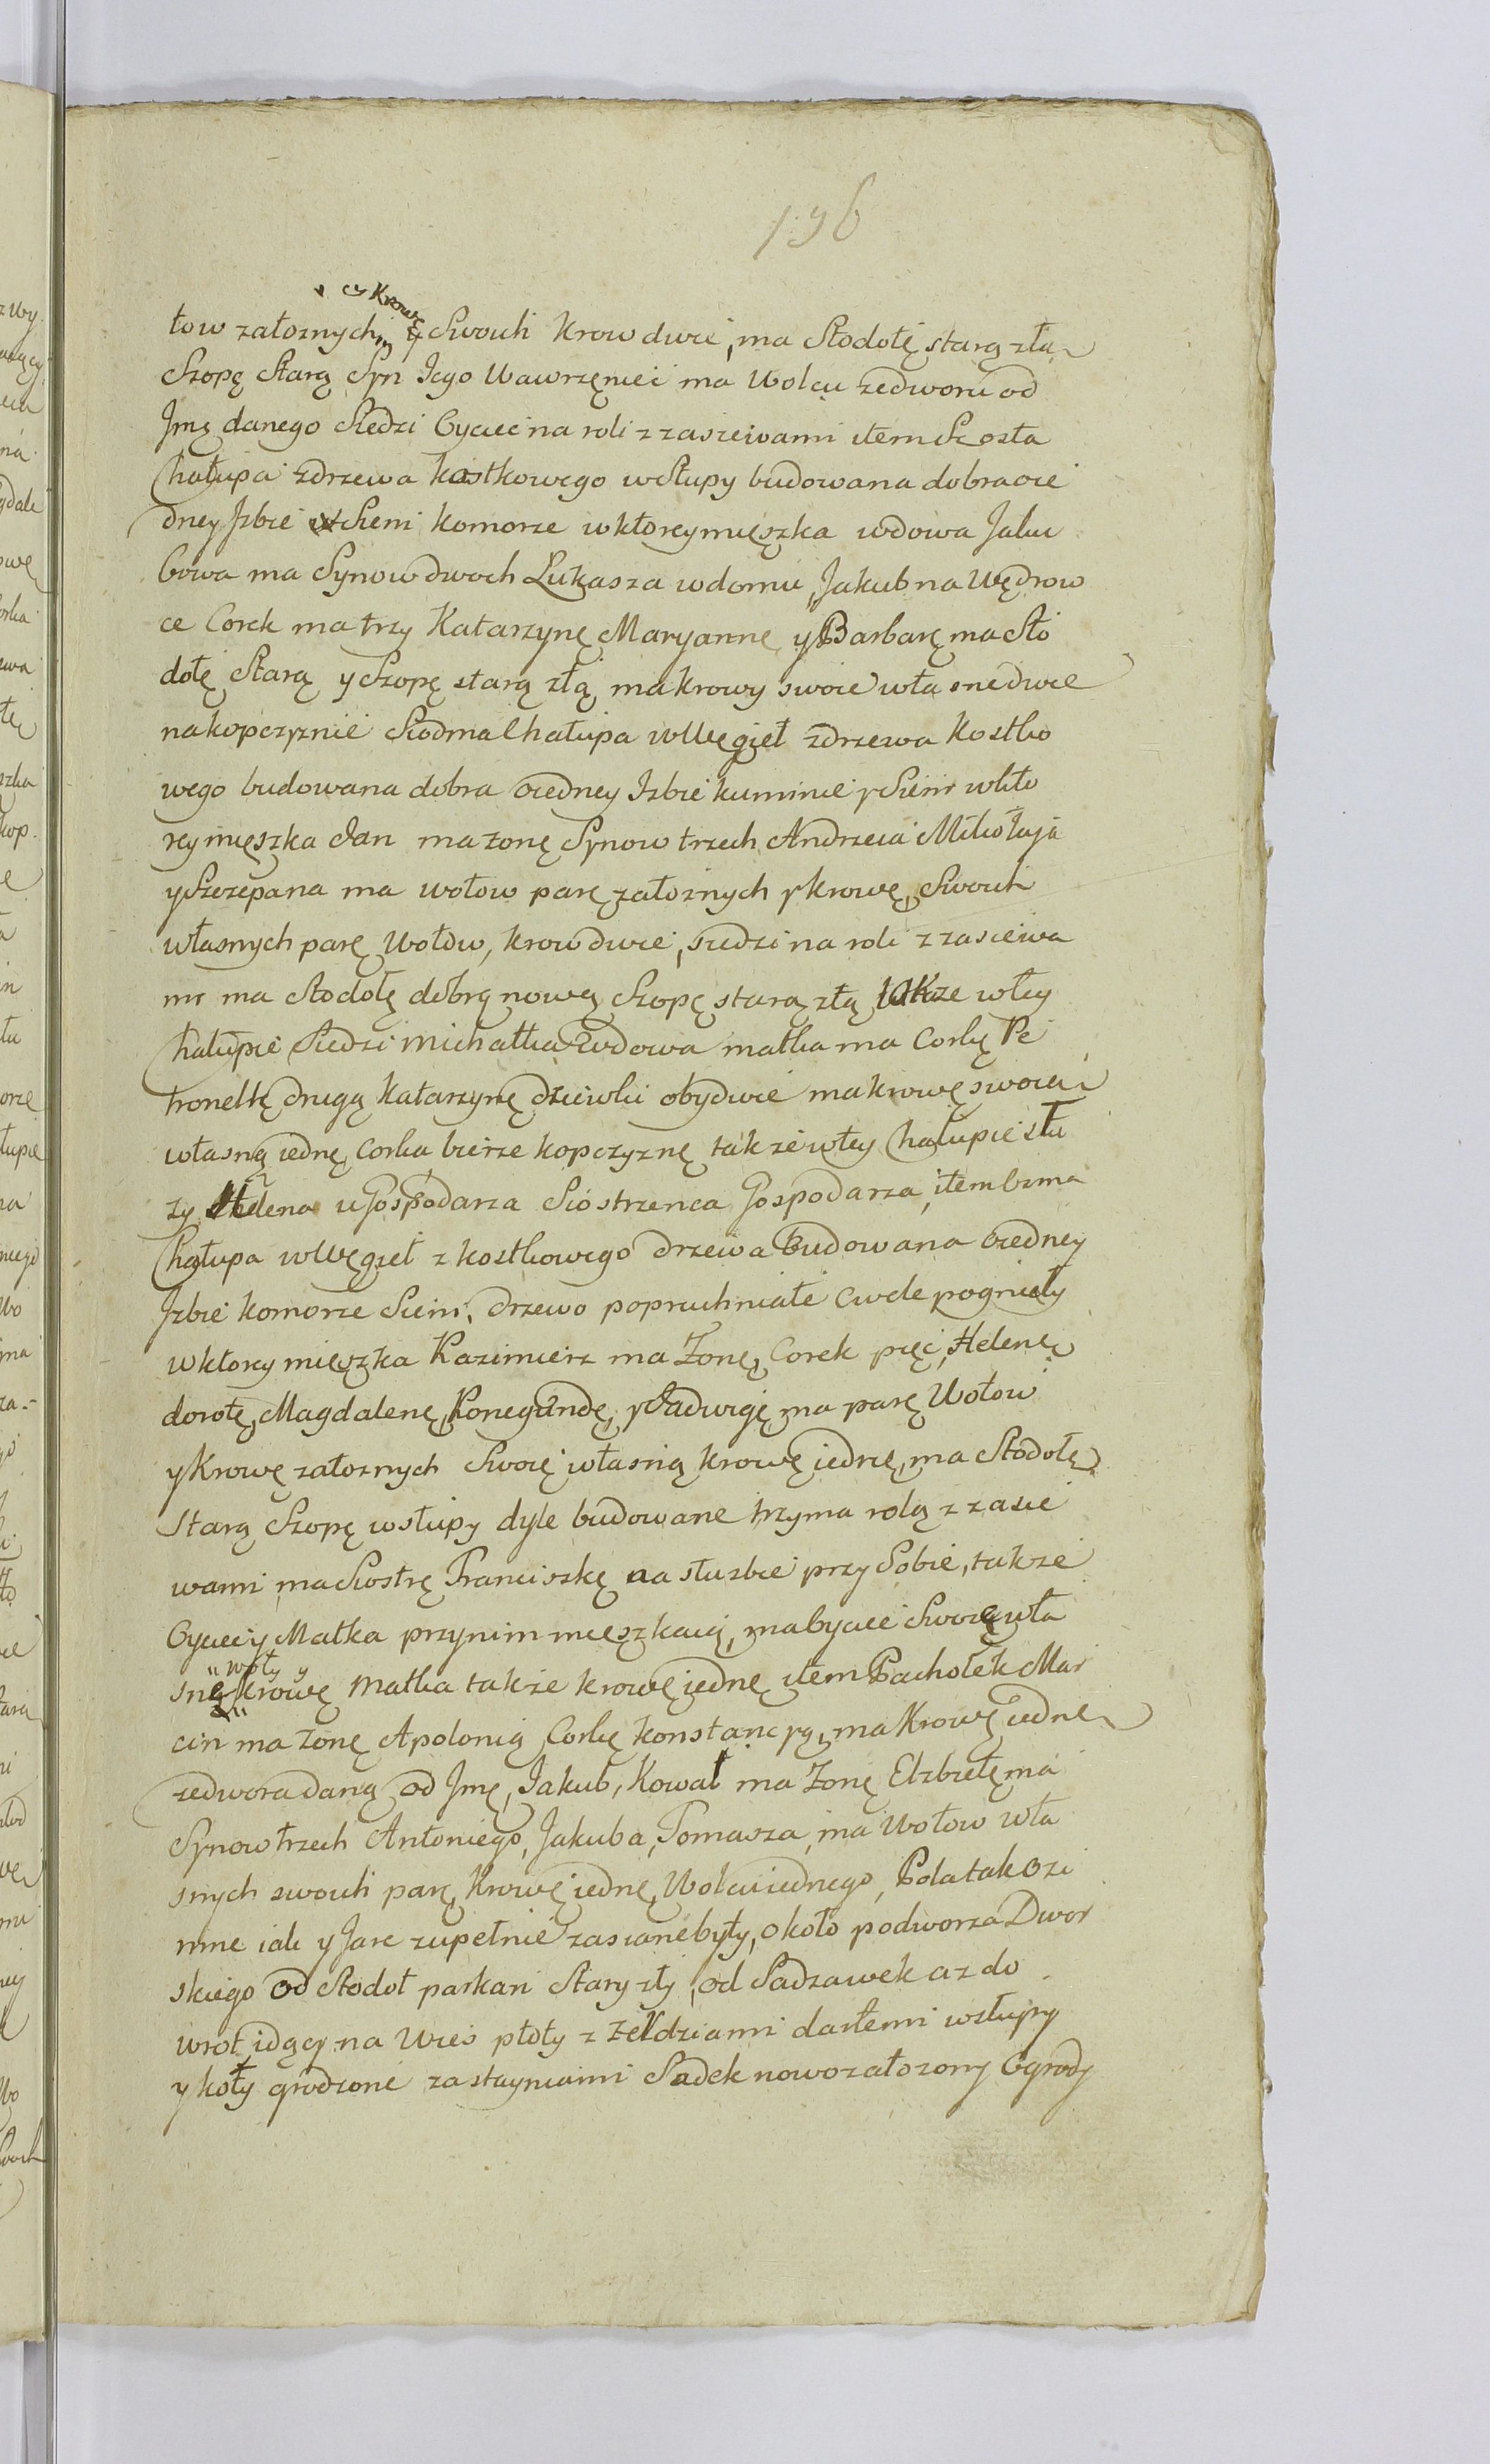 196
y Krowę
łow załoznych y Swoich krow dwie, ma Stodołę starą złą
Szopę Starą Syn Jego Wawrzęniec ma Wolcu zedworu od
Jmę danego Siedzi Oyciec na roli z zasiewami item Szosta
Chałupa zdrzewa kostkowego wSłupy budowana dobra oie
dney Jzbie Sieni komorze wktoreymięszka wdowa Jaku
bowa ma Synow dwoch Łukasza wdomu, Jakub na Wędrow
ce Corek ma trzy Katarzynę Maryannę y Barbarę ma Sto
dołę Starą y Szopę starą złą ma krowy swoie własne dwie
nakopczyznie Siodma Chałupa wWęgieł zdrzewa kostko
wego budowana dobra oiedney Izbie kuminie y Sieni wkto
rey mięszka Jan ma zonę Synow trzech Andrzeia Mikołaja
y Szczepana ma wołow parę załoznych y krowę, Swoich
własnych parę Wołow, krow dwie, siedzi na roli z zasiewa
mi ma Stodołę dobrą nową Szopę starą złą takze wtey
Chałupie Siedzi Michałka Wdowa matka ma Corkę Pe
tronelkę drugą Katarzynę dziewki obydwie ma krowę swoią
własną iednę, Corka bierze kopczyznę takze wtey Chałupie słu
zy Helena uGospodarza Siostrzenca Gospodarza, item bsma
Chałupa wWęgieł z kostkowego drzewa Budowana oiedney
Jzbie komorze Sieni, drzewo popruchniałe Cwele pogniely
wktorey mieszka Kazimierz ma Zonę, Corek pięć, Helenę
dorotę, Magdalenę, Konegundę, y Jadwigę ma parę Wołow
y Krowę załoznych Swoię własną krowę iednę, ma Stodołę
Starą Szopę wsłupy dyle budowane trzyma rolą z zasie
wami, ma Siostrę Franciszkę na słuzbie przy Sobie, takze
Oyciec y Matka przynim mieszkaią, ma Oyciec Swoie wła
woły y
sne krowę Matka takze krowę iednę item Pachołek Mar
cin ma zonę Apolonią Corkę konstancyą, ma Krowę iednę
zedwora daną od Jmę, Jakub, Kowal ma Zonę Elzbietę ma
Synow trzech Antoniego, Jakuba, Tomasza, ma Wołow wła
snych swoich parę, Krowę iednę, Wolcu iednego, Pola tak Ozi
mine iak y Jare zupełnie zasiane były, około podworza Dwor
skiego Od Stodoł parkan Stary zły, od Sadzawek az do
wrot idący na Wies płoty z Zerdziami dartemi wsłupy
y koły grodzone za stayniami Sadek nowozałozony Ogrody